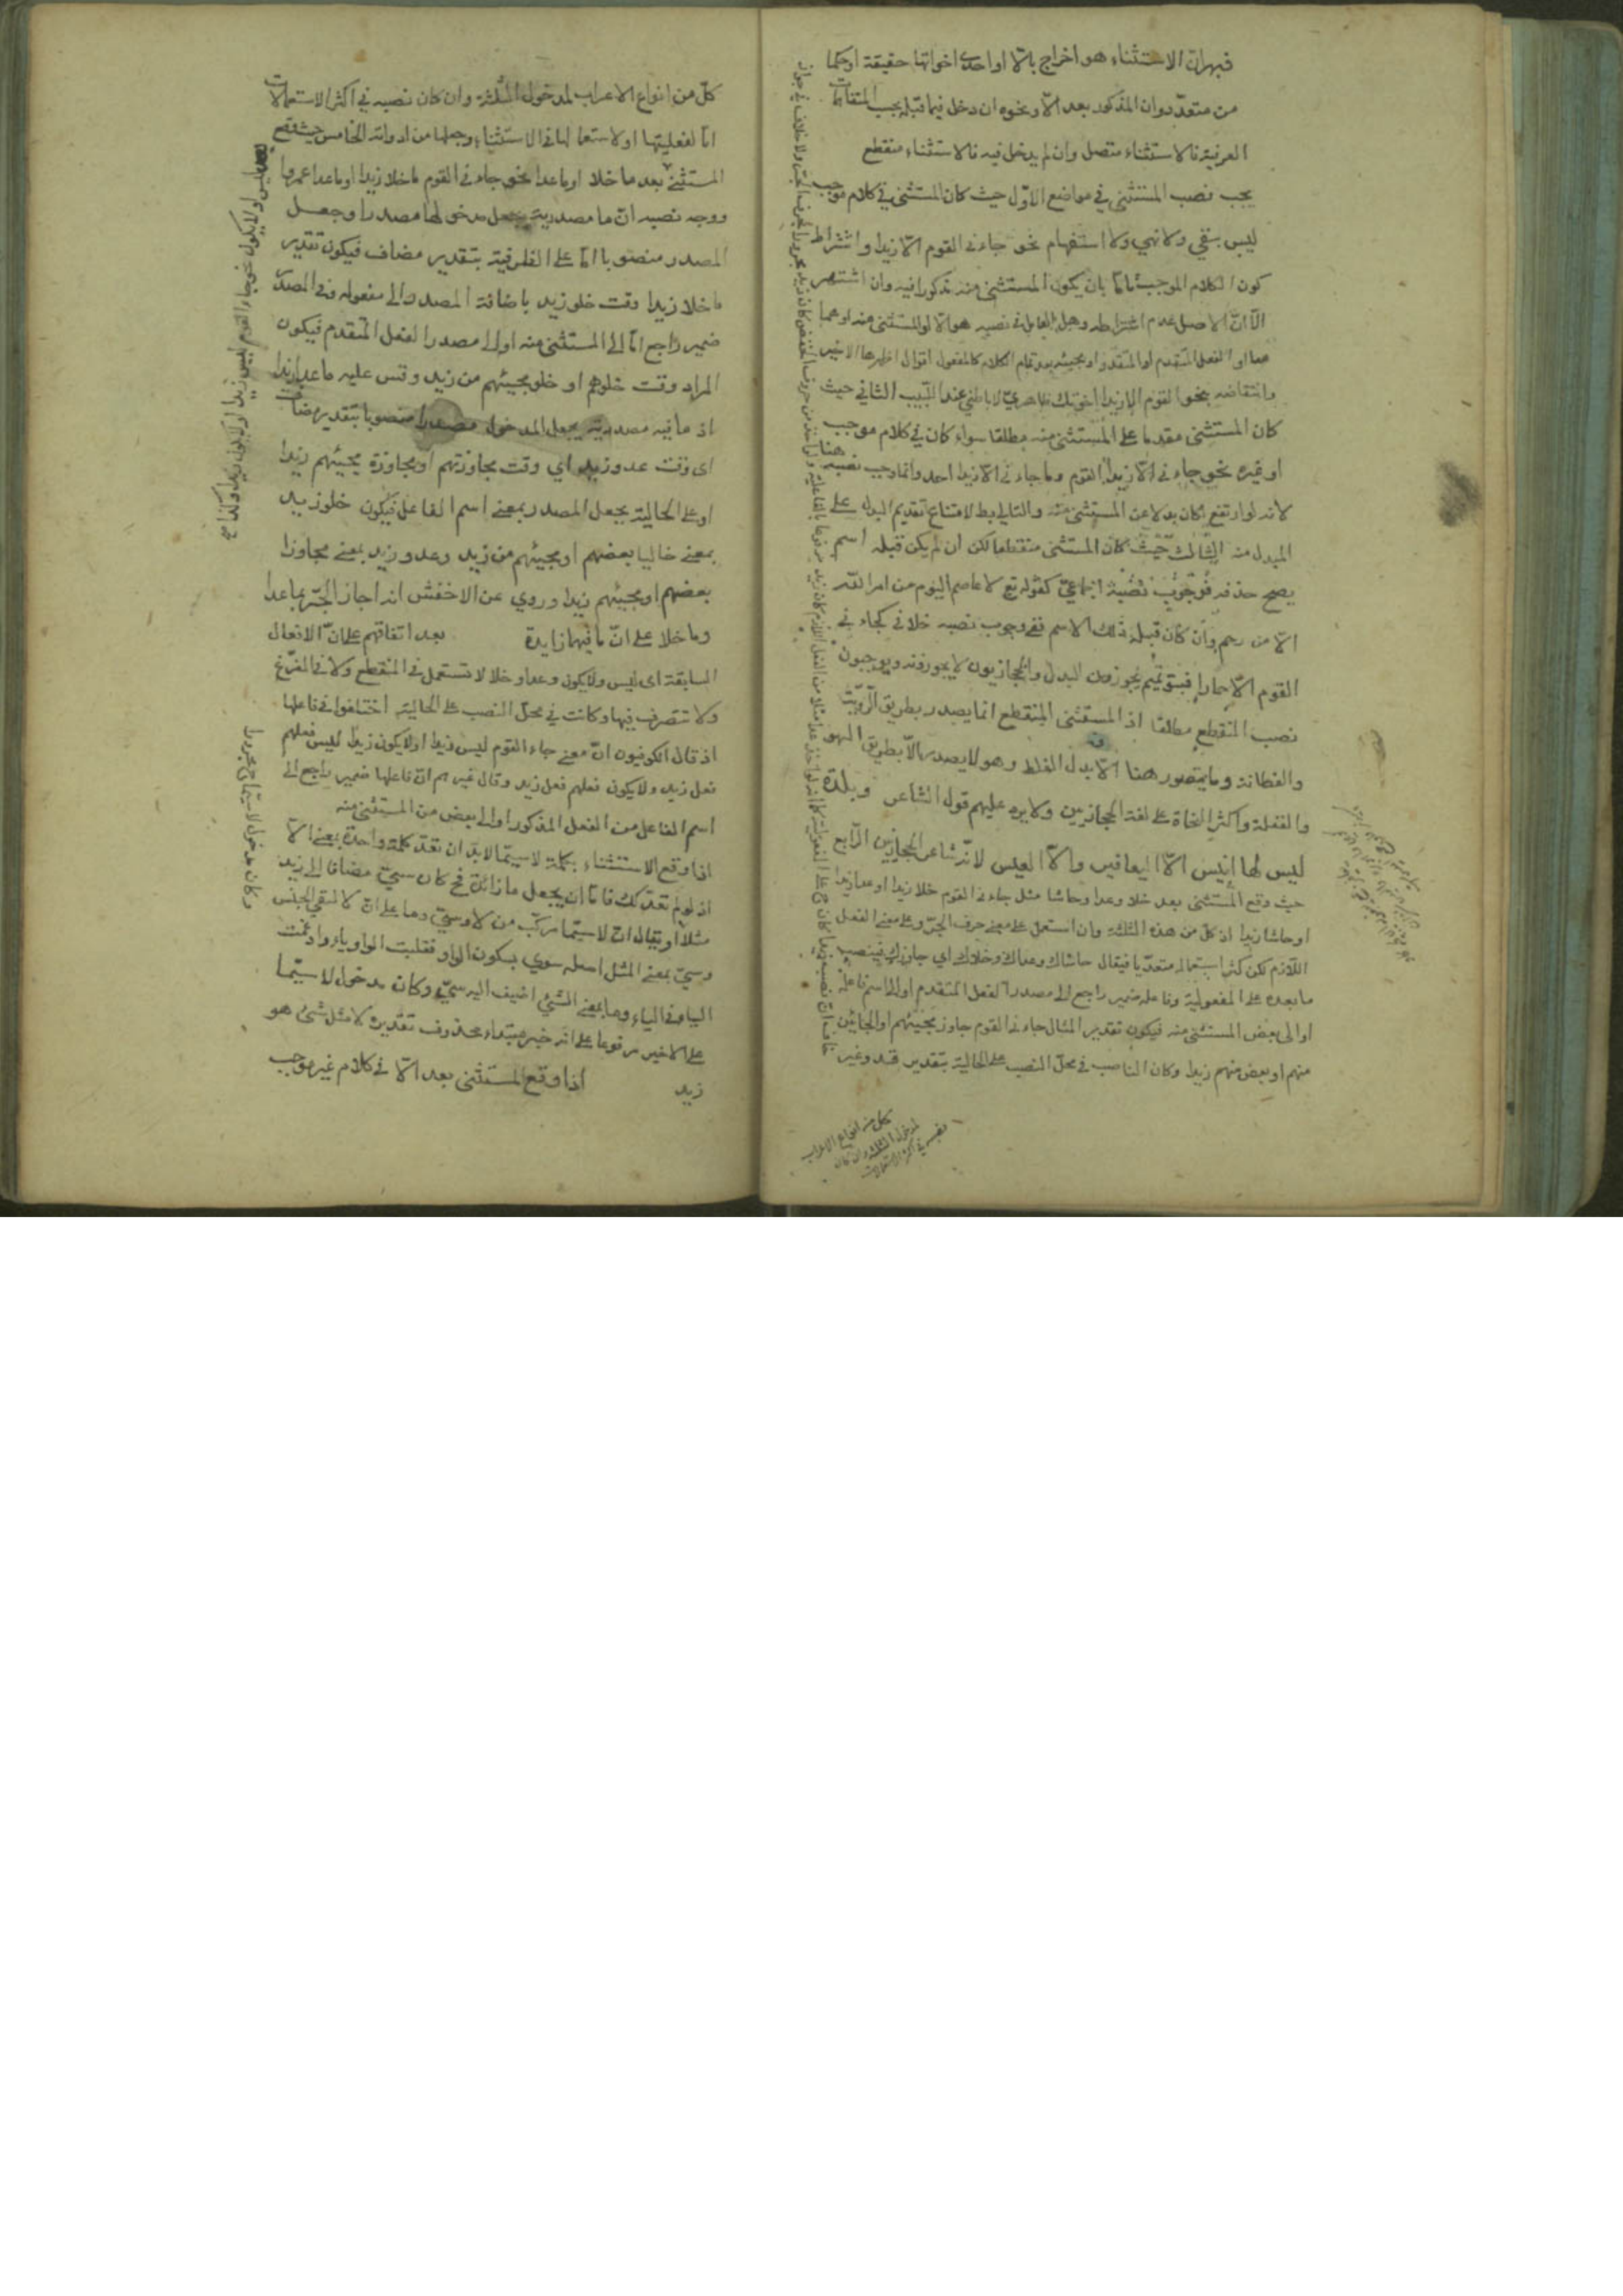 فبهران الاستثناء هو اخراج بالّا او احدى اخواتها حقيقة او حكما
من متعدّد وان المذكور بعد الّا ونحوه ان دخل فيما قبله بحسب المتفاهمات
العرفية فالاستثناء متصل وان لم يدخل فيه فالاستثناء منقطع
يجب نصب المستثنى في مواضع الاوّل حيث كان المستثنى في كلام موجب
ليس بنفي ولا نهي ولا استفهام نحو جاءني القوم الّا زيدا واشتراط
كون الكلام الموجب تامّا بان يكون المستثنى منه مذكورا فيه وان اشتهر
الّا انّ الاصل عدم اشتراطه وهل العامل في نصبه هو الّا او المستثنى منه او هما
معا او الفعل المتقدم او المقدر او مجيئه بعد تمام الكلام كالمفعول اقوال اظهرها الاخير
وانتقاضه بنحو القوم الّا زيدا اخوتك ظاهريّ لا باطني عند اللبيب الثاني حيث
كان المستثنى مقدما على المستثنى منه مطلقا سواء كان في كلام موجب
او غيره نحو جاءني الّا زيدا القوم وما جاءني الّا زيدا احد وانما وجب نصبه هنا
لانه لو ارتفع لكان بدلا عن المستثنى منه والتالي بط لامتناع تقديم البدل على
المبدل منه الثالث حيث كان المستثنى منقطعا لكن ان لم يكن قبله اسم
يصح حذفه فوجوب نصبه اجماعيّ كقوله تع لا عاصم اليوم من امر الله
الّا من رحم وان كان قبله ذلك الاسم ففي وجوب نصبه خلاف كجاءني
القوم الّا حمارا فبنو تميم يجوزون البدل والحجازيون لا يجوزونه ويوجبون
نصب المنقطع مطلقا اذ المستثنى المنقطع انما يصدر بطريق الرّويّة
والفطانة وما يتصور هنا الّا بدل الغلط وهو لا يصدر الّا بطريق السهو
والغفلة واكثر النحاة على لغة الحجازيين ولا يرد عليهم قول الشاعر وبلدة
ليس لها انيس الّا اليعافير والّا العيس لانّه شاعر الحجازيين الرابع
حيث وقع المستثنى بعد خلا وعدا وحاشا مثل جاءني القوم خلا زيدا او عدا زيدا
او حاشا زيدا اذ كلّ من هذه الثلثة وان استعمل على معنى حرف الجرّ وعلى معنى الفعل
اللازم لكن كثر استعماله متعدّيا فيقال حاشاك وعداك وخلاك اي جاوزك فينصب
ما بعده على المفعولية وفاعله ضمير راجع الى مصدر الفعل المتقدم او الى اسم فاعله
او الى بعض المستثنى منه فيكون تقدير المثال جاءني القوم جاوز مجيئهم او الجائين
منهم او بعض منهم زيدا وكان الناصب في محلّ النصب على الحالية بتقدير قد وغير
كل من انواع الاعراب
لمدخول الثلثة وان كان
نصبه في اكثر الاستعمالات
كلّ من انواع الاعراب لمدخول الثلثة وان كان نصبه في اكثر الاستعمالات
امّا لفعليتها او لاستعمالها في الاستثناء وجعلها من ادواته الخامس حيث وقع
المستثنى بعد ما خلا او ما عدا نحو جاءني القوم ما خلا زيدا او ما عدا عمروا
ووجه نصبه انّ ما مصدرية يجعل مدخولها مصدرا وجعل
المصدر منصوبا امّا على الظرفية بتقدير مضاف فيكون تقدير
ما خلا زيدا وقت خلو زيد باضافة المصدر الى مفعوله وفي المصدر
ضمير راجع امّا الى المستثنى منه او الى مصدر الفعل المتقدم فيكون
المراد وقت خلوهم او خلو مجيئهم من زيد وقس عليه ما عدا زيدا
اذ ما فيه مصدرية يجعل المدخول مصدرا منصوبا بتقدير مضاف
اى وقت عدو زيد اي وقت مجاوزتهم او مجاوزة مجيئهم زيدا
او على الحالية بجعل المصدر بمعنى اسم الفاعل فيكون خلو زيد
بمعنى خاليا بعضهم او مجيئهم من زيد وعدو زيد بمعنى مجاوزا
بعضهم او مجيئهم زيدا وروي عن الاخفش انه اجاز الجرّ بما عدا
وما خلا على انّ ما فيهما زايدة بعد اتفاقهم على انّ الافعال
السابقة اى ليس ولا يكون وعدا وخلا لا تستعمل في المنقطع ولا في المفرّغ
ولا تتصرف فيها وكانت في محلّ النصب على الحالية اختلفوا في فاعلها
اذ قال الكوفيون انّ معنى جاء القوم ليس زيدا او لا يكون زيدا ليس فعلهم
فعل زيد ولا يكون فعلهم فعل زيد وقال غيرهم انّ فاعلها ضمير راجع الى
اسم الفاعل من الفعل المذكور او الى بعض من المستثنى منه
اذا وقع الاستثناء بكلمة لا سيّما لابدّ ان تعدّ كلمة واحدة بمعنى الّا
اذ لو لم تعدّ كذلك فامّا ان يجعل ما زائدة فح كان سيّ مضافا الى زيد
مثلا او يقال انّ لا سيّما مركّب من لا وسيّ وما على انّ لا لنفي الجنس
وسيّ بمعنى المثل اصله سوي بسكون الواو فقلبت الواو ياء وادغمت
الياء في الياء وما بمعنى الشيّ اضيف اليه سيّ وكان مدخول لا سيّما
على الاخير مرفوعا على انّه خبر مبتداء محذوف تقديره لا مثل شئ هو
زيد اذا وقع المستثنى بعد الّا في كلام غير موجب
بعد ليس او لا يكون نحو جاء القوم ليس زيدا او لا يكون زيدا
وكان مدخول لا سيّما ح مجرورا